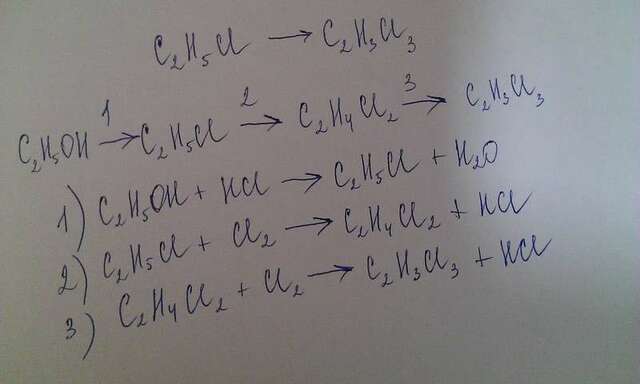 C₂H₅Cl → C₂H₃Cl₃
C₂H₅OH →¹ C₂H₅Cl →² C₂H₄Cl₂ →³ C₂H₃Cl₃
1) C₂H₅OH + HCl → C₂H₅Cl + H₂O
2) C₂H₅Cl + Cl₂ → C₂H₄Cl₂ + HCl
3) C₂H₄Cl₂ + Cl₂ → C₂H₃Cl₃ + HCl